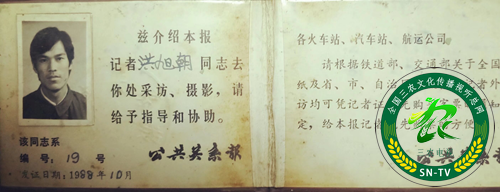 兹介绍本报
记者洪旭朝同志去
你处采访、摄影,请
给予指导和协助。
该同志系
编号:19号
发证日期:1988年10月
公共关系报
各火车站、汽车站、航运公司
请根据铁道部、交通部关于全国
纸及省、市、自
者外
访均可凭记者
先购
票
定,给本报记
先
方便
公共关系报
全国三农文化传播视听总网
三农电视
SN-TV